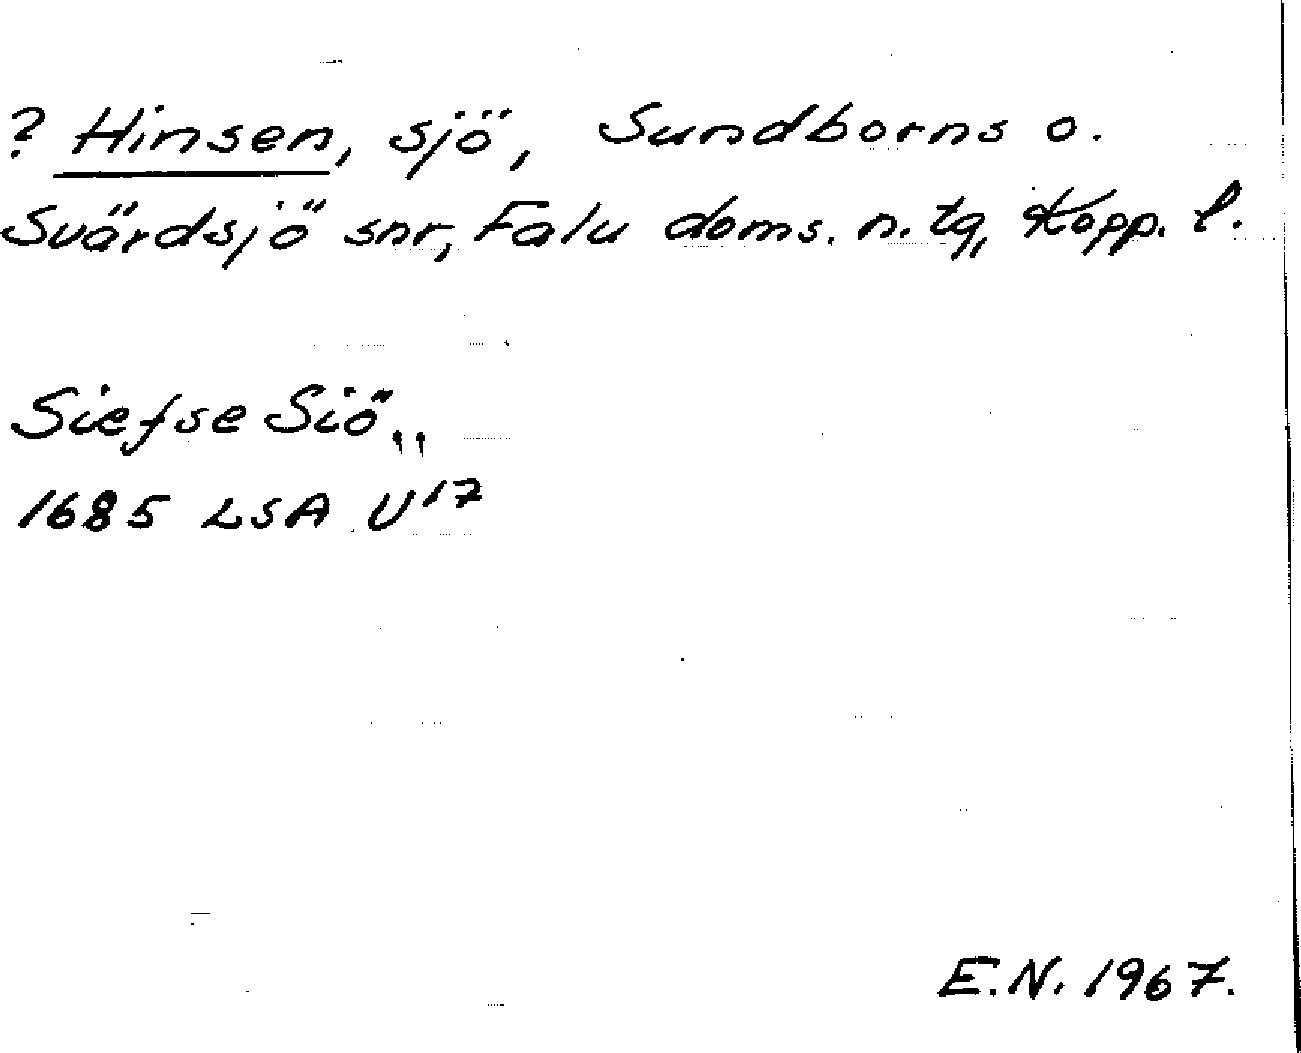 ? Hinsen, sjö, Sundborns o.
Svärdsjö snr, Falu doms. n. tg, Kopp. l.
Siefse Siö „
1685 LSA U17
E.N. 1967.